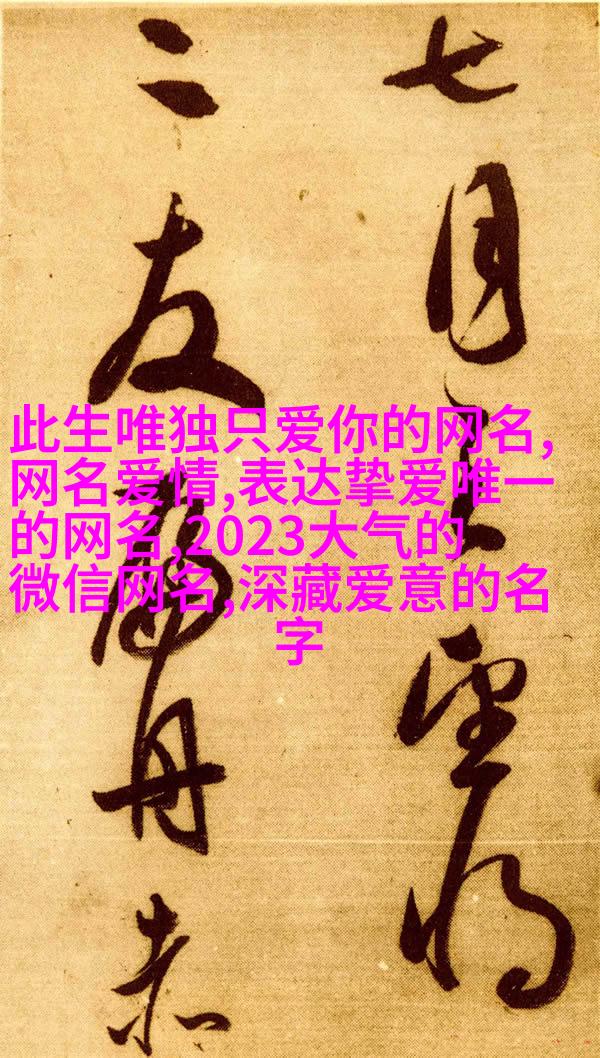 此生唯独只爱你的网名,
网名爱情,表达挚爱唯一
的网名,2023大气的
微信网名,深藏爱意的名
字
七月望
二友丹赤